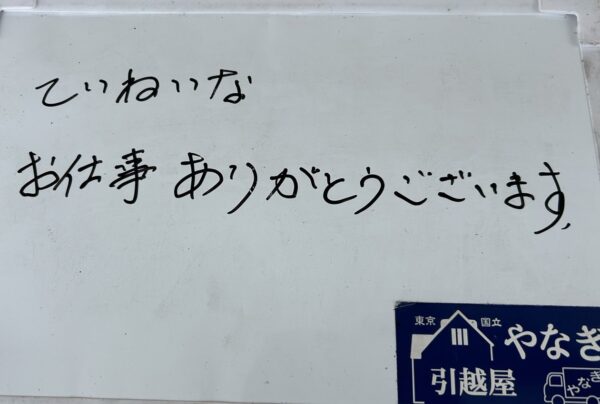 ていねいな
お仕事 ありがとうございます。
東京 国立 やなぎ
引越屋
やなぎ